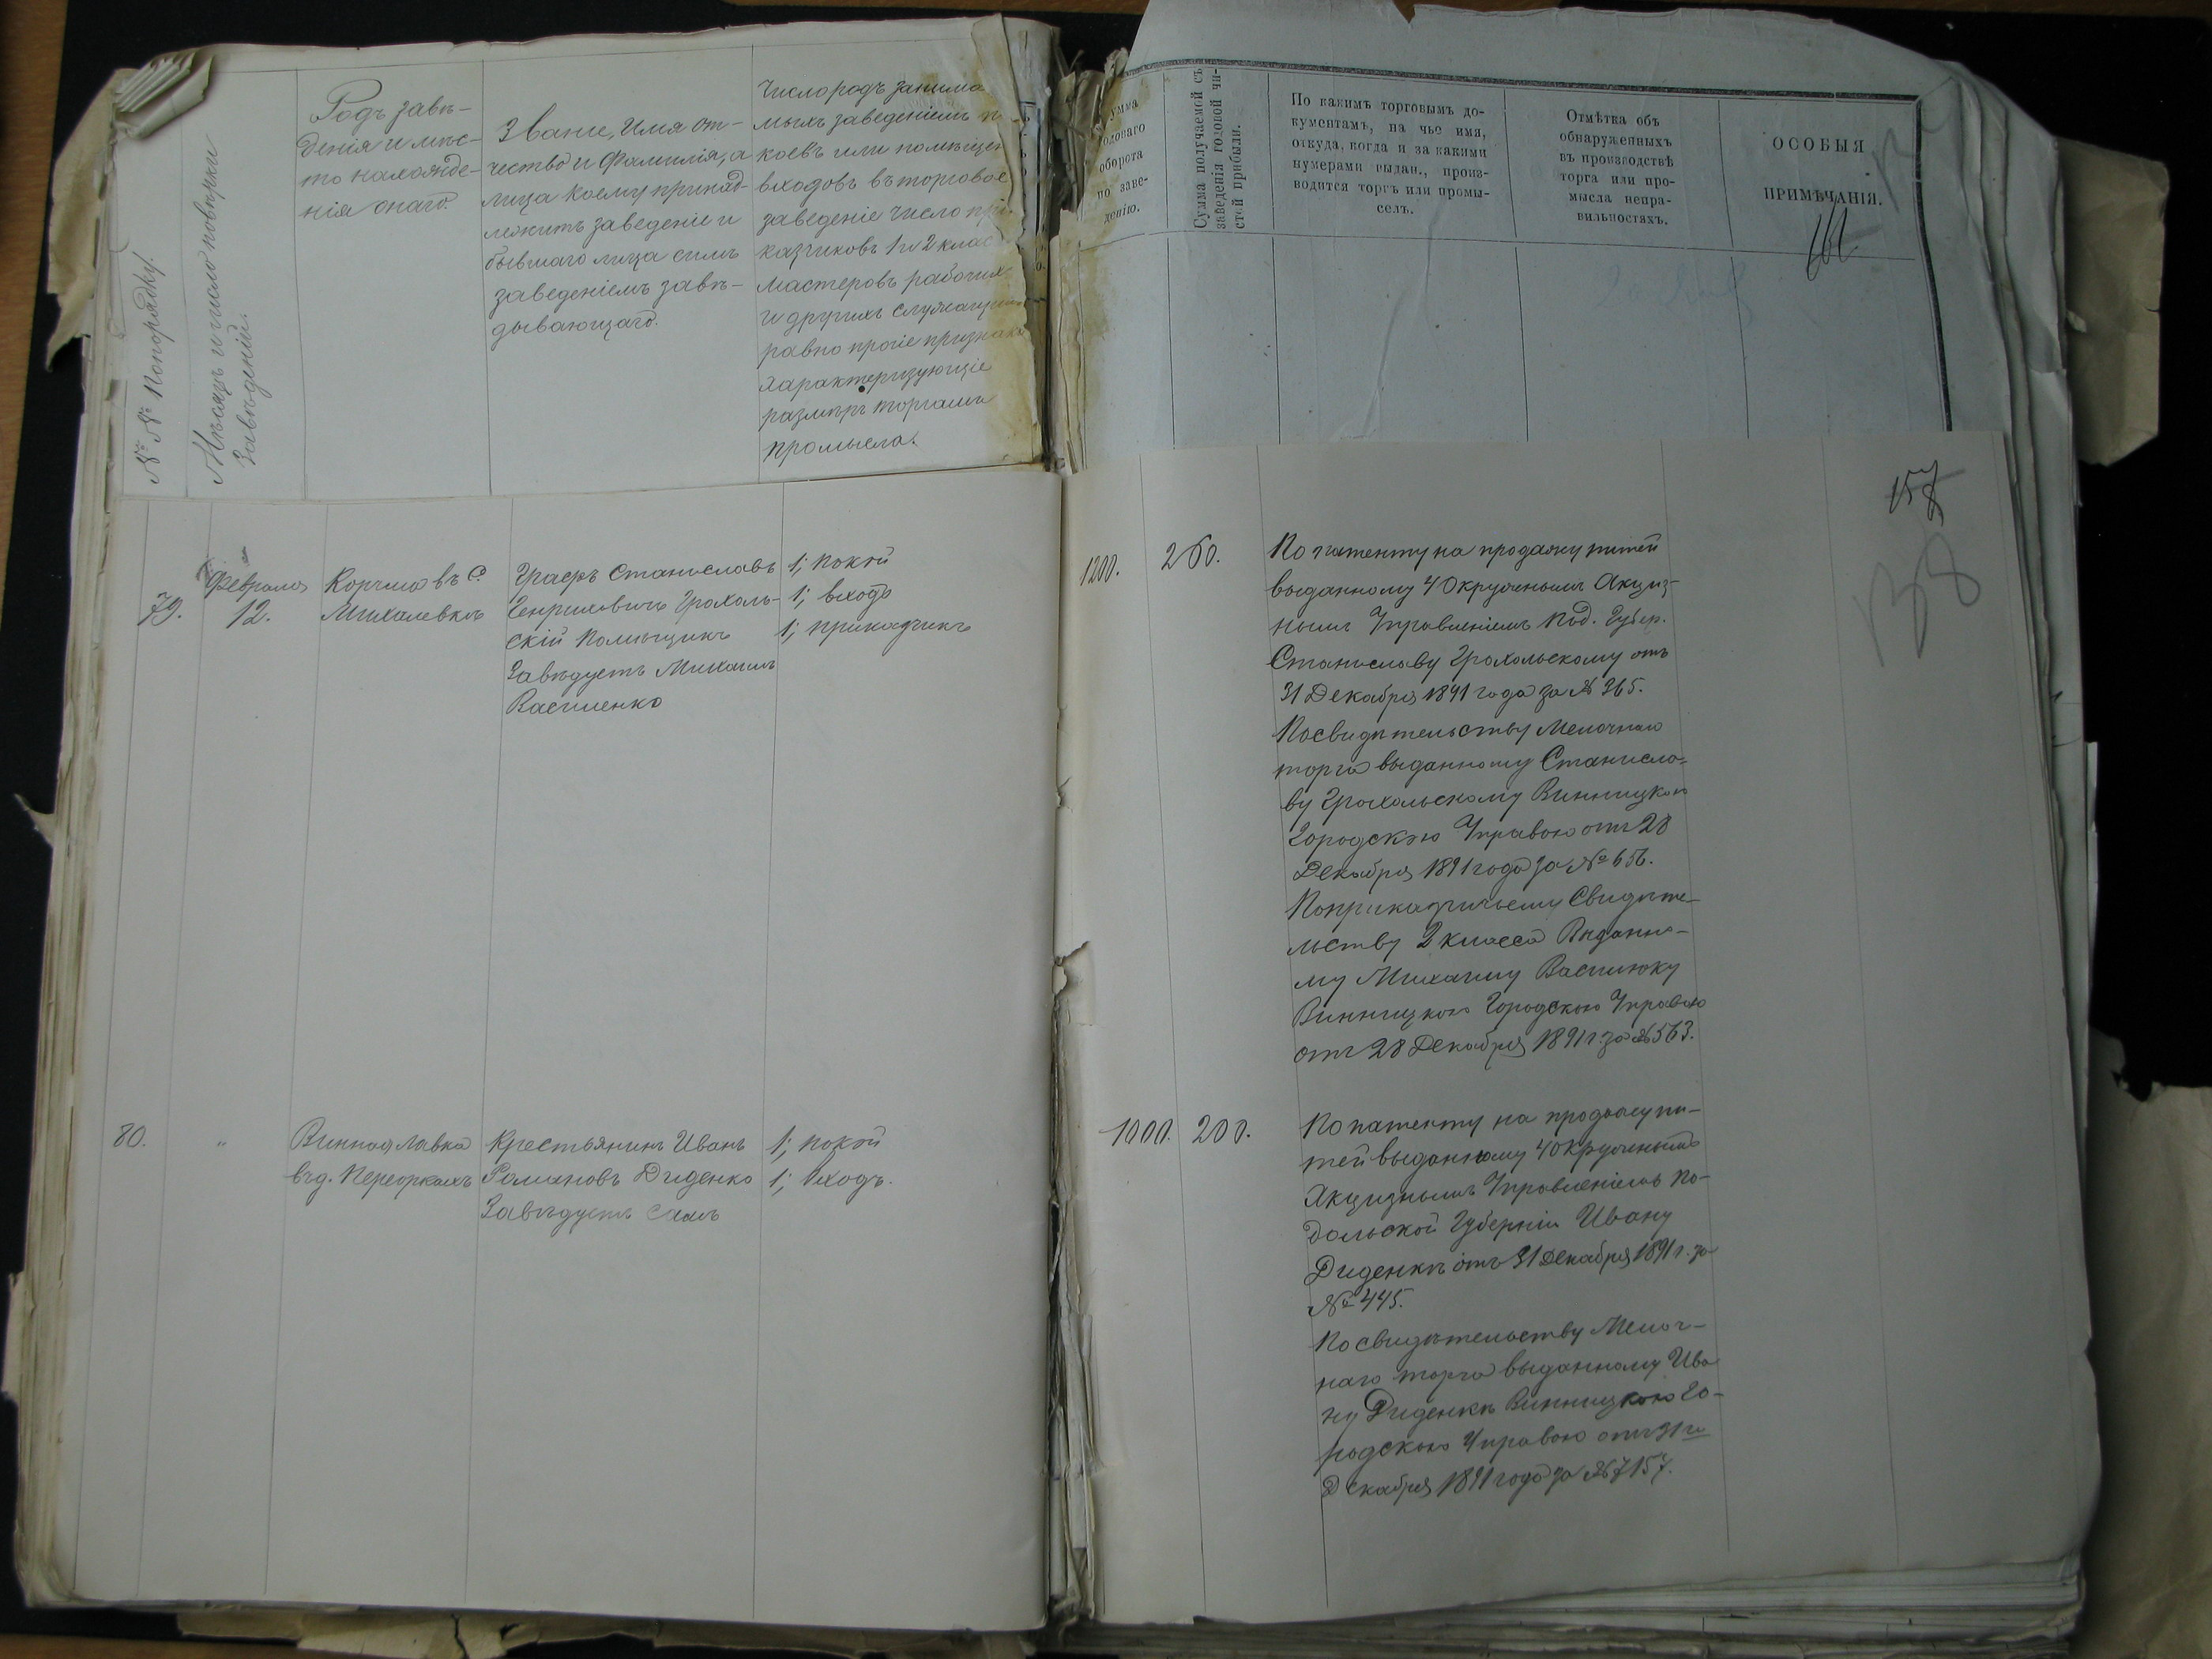 №№ Попорядку.
Мѣсяцъ и число повѣрки
Завѣденій.
Родъ завѣ-
денія и мѣс-
то нахожде-
нія онаго.
Званіе, Имя от-
чество и Фамилія, а
лица коему принад-
лежитъ заведеніе и
бывшаго лица симъ
заведеніемъ завѣ-
дывающаго.
Число родъ занима
мыхъ заведеніемъ п
коевъ или помѣщен
входовъ въ торговое
заведеніе число при
казчиковъ 1 и 2 клас
мастеровъ рабочихъ
и другихъ служащихъ
равно прочіе признаки
характеризующіе
размѣръ торга или
промысла.
умма
одоваго
оборота
по заве-
денію.
Сумма получаемой съ
заведенія годовой чи-
стой прибыли.
По какимъ торговымъ до-
кументамъ, на чье имя,
откуда, когда и за какими
нумерами выдан., произ-
водится торгъ или промы-
селъ.
Отмѣтка объ
обнаруженныхъ
въ производствѣ
торга или про-
мысла непра-
вильностяхъ.
ОСОБЫЯ
ПРИМѢЧАНІЯ.
158
79.
Февраля
12.
Корчма въ с.
Михалевкѣ
Графъ Станиславъ
Генриховичъ Грохоль-
скій Помѣщикъ
Завѣдуетъ Михаилъ
Василенко
1; покой
1; входъ
1; прикащикъ
1200.
260.
По патенту на продажу питей
выданному 4 Окружнымъ Акциз-
нымъ Управленіемъ Под. Губер.
Станиславу Грохольскому отъ
31 Декабря 1891 года за № 365.
Посвидѣтельству Мелочнаго
торга выданному Станисла-
ву Грохольскому Винницкою
Городскою Управою отъ 28
Декабря 1891 года за № 656.
Поприкащичьему Свидѣте-
льству 2 класса Выданно-
му Михаилу Василюку
Винницкою Городскою Управою
отъ 28 Декабря 1891 г. за № 563.
80.
"
Винная лавка
въ д. Переоркахъ
Крестьянинъ Иванъ
Романовъ Диденко
Завѣдуетъ самъ
1; покой
1; входъ.
1000.
200.
По патенту на продажу пи-
тей выданному 4 Окружнымъ
Акцизнымъ Управленіемъ По-
дольской Губерніи Ивану
Диденкѣ отъ 31 Декабря 1891 г. за
№ 445.
По свидѣтельству Мелоч-
наго торга выданному Ива
ну Диденкѣ Винницкою Го-
родскою Управою отъ 31 го
Декабря 1891 года за № 7157.